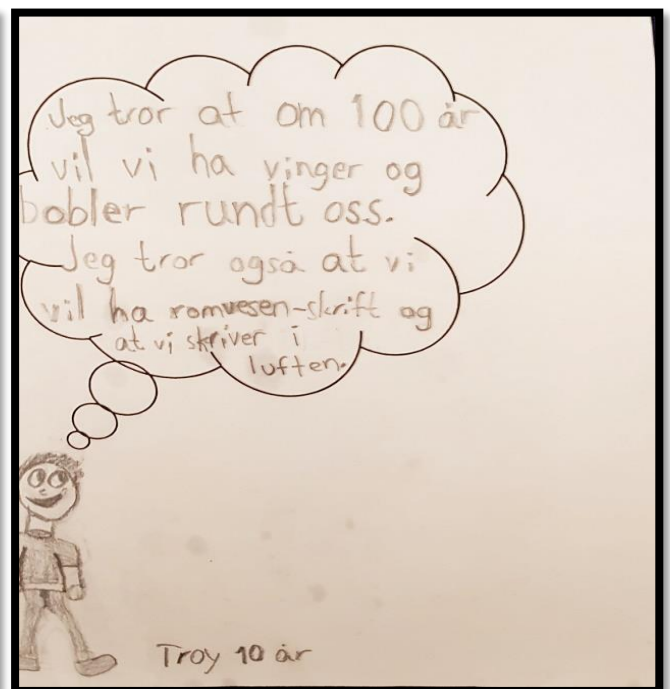 Jeg tror at om 100 år
vil vi ha vinger og
bobler rundt oss.
Jeg tror også at vi
vil ha romvesen-skrift og
at vi skriver i
luften.
Troy 10 år